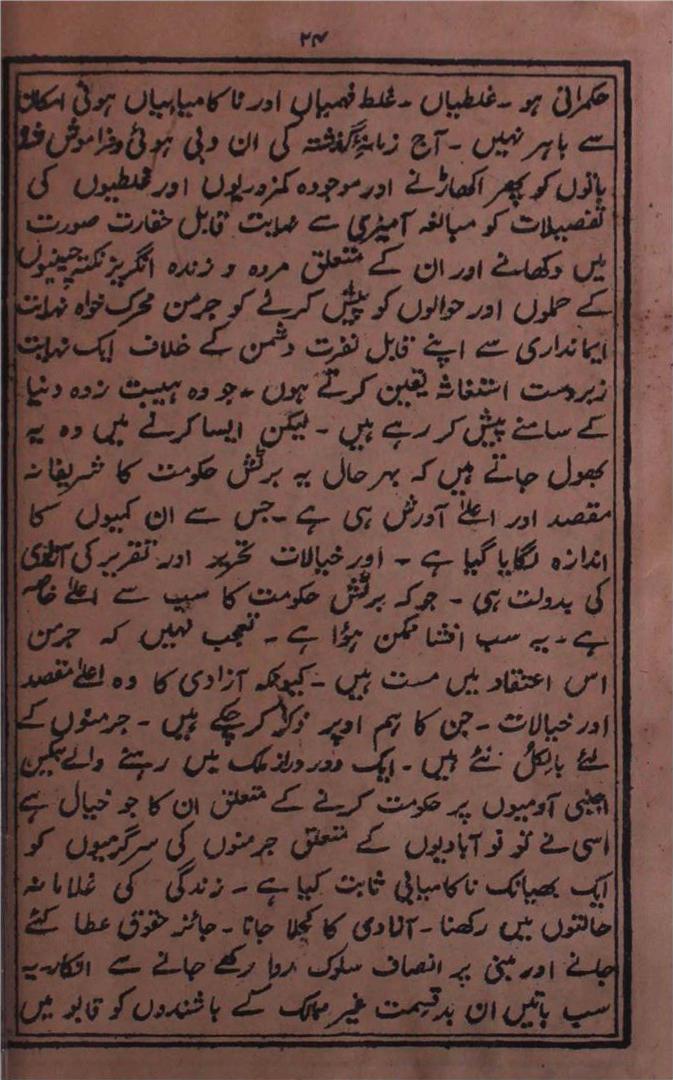 ۲۴
حکمرانی ہو ۔ غلطیاں ۔ غلط فہمیاں اور ناکامیابیاں ہونی امکان
سے باہر نہیں ۔ آج زمانۂ گذشتہ کی ان دبی ہوئی و فراموش شدہ
باتوں کو پھر اکھاڑنے اور موجودہ کمزوریوں اور غلطیوں کی
تفصیلات کو مبالغہ آمیزی سے نہایت قابل حقارت صورت
میں دکھانے اور ان کے متعلق مردہ و زندہ انگریز نکتہ چینیوں
کے حملوں اور حوالوں کو پیش کرنے کو جرمن محرک خواہ نہایت
ایمانداری سے اپنے قابل نفرت دشمن کے خلاف ایک نہایت
زبردست استغاثہ یقین کرتے ہوں ۔ جو وہ ہیبت زدہ دنیا
کے سامنے پیش کر رہے ہیں ۔ لیکن ایسا کرنے میں وہ یہ
بھول جاتے ہیں کہ بہر حال یہ برٹش حکومت کا شریفانہ
مقصد اور اعلےٰ آدرش ہی ہے ۔ جس سے ان کمیوں کا
اندازہ لگایا گیا ہے ۔ اور خیالات تحریر اور تقریر کی آزادی
کی بدولت ہی ۔ جو کہ برٹش حکومت کا سب سے اعلےٰ خاصہ
ہے ۔ یہ سب افشا ممکن ہؤا ہے ۔ تعجب نہیں کہ جرمن
اس اعتقاد میں مست ہیں ۔ کیونکہ آزادی کا وہ اعلےٰ مقصد
اور خیالات ۔ جن کا ہم اوپر ذکر کر چکے ہیں ۔ جرمنوں کے
لئے بالکل نئے ہیں ۔ ایک دور دراز ملک میں رہنے والے
اجنبی آدمیوں پر حکومت کرنے کے متعلق ان کا جو خیال ہے
اسی نے تو نو آبادیوں کے متعلق جرمنوں کی سرگرمیوں کو
ایک بھیانک ناکامیابی ثابت کیا ہے ۔ زندگی کی غلامانہ
حالتوں میں رکھنا ۔ آزادی کا کچلا جانا ۔ جائز حقوق عطا کئے
جانے اور مبنی پر انصاف سلوک روا رکھے جانے سے انکار ۔ یہ
سب باتیں ان بدقسمت غیر ممالک کے باشندوں کو قابو میں